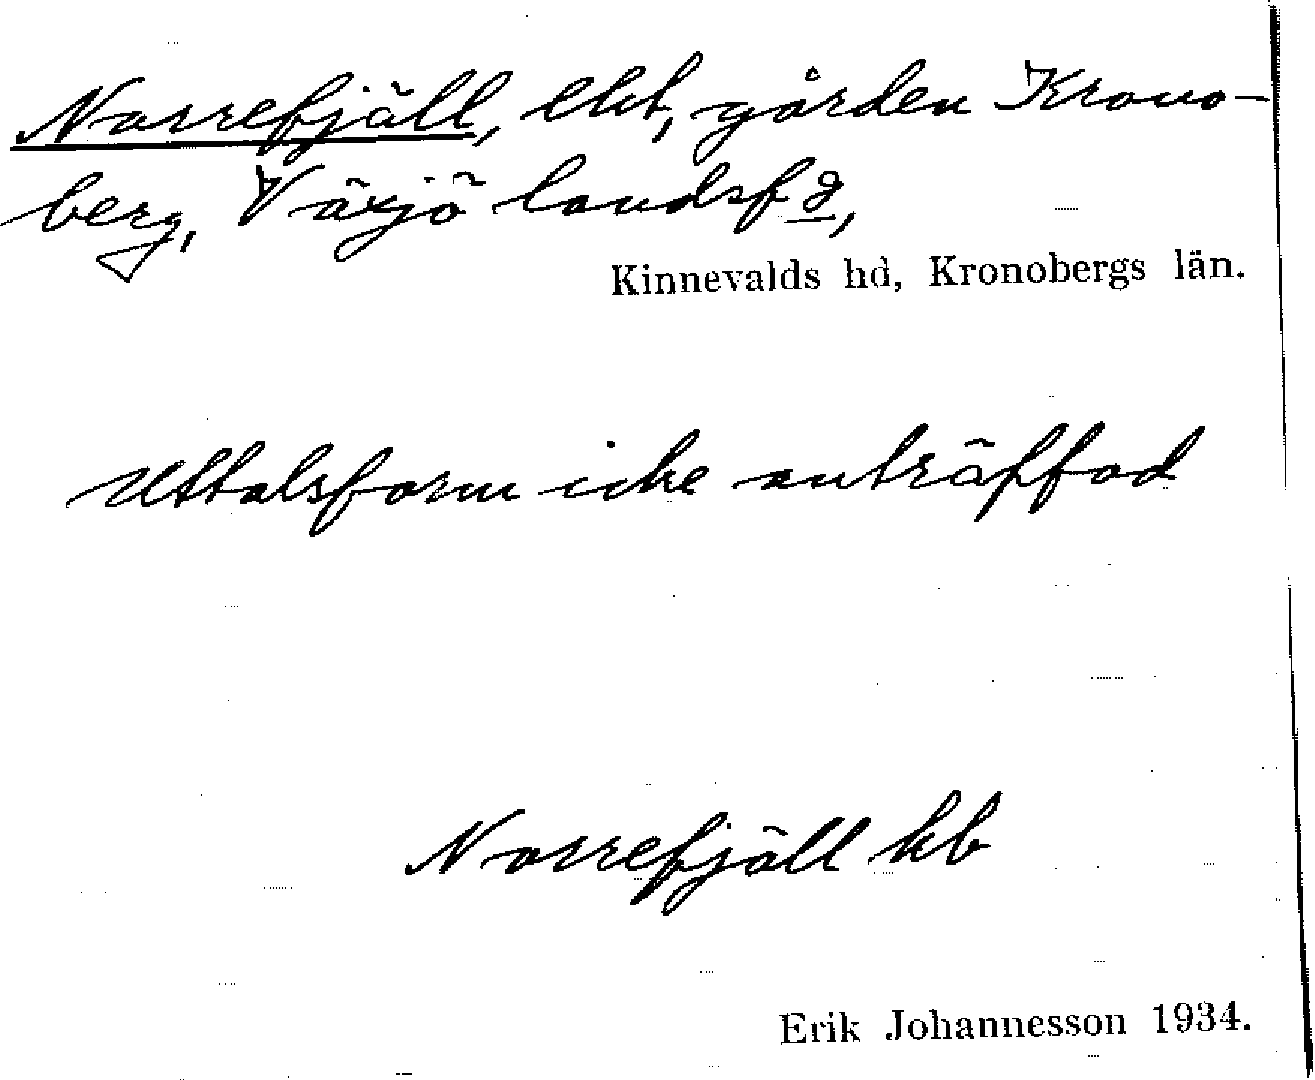 Norrefjäll, lht, gården Krono-
berg, Växjö landsfg,
Kinnevalds hd, Kronobergs län.
Uttalsform icke anträffad
Norrefjäll kb
Erik Johannesson 1934.